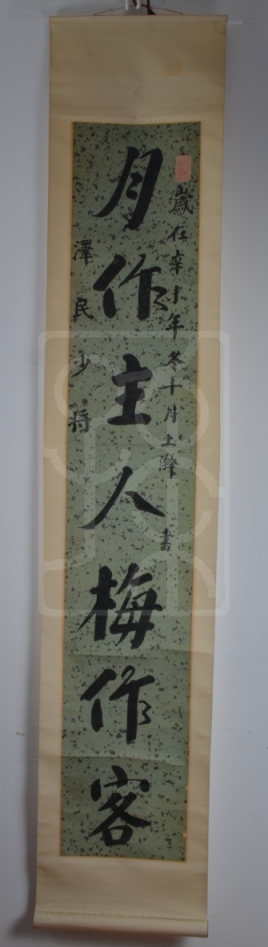 歲在辛年冬十月上澣 書
月作主人梅作客
澤民少将